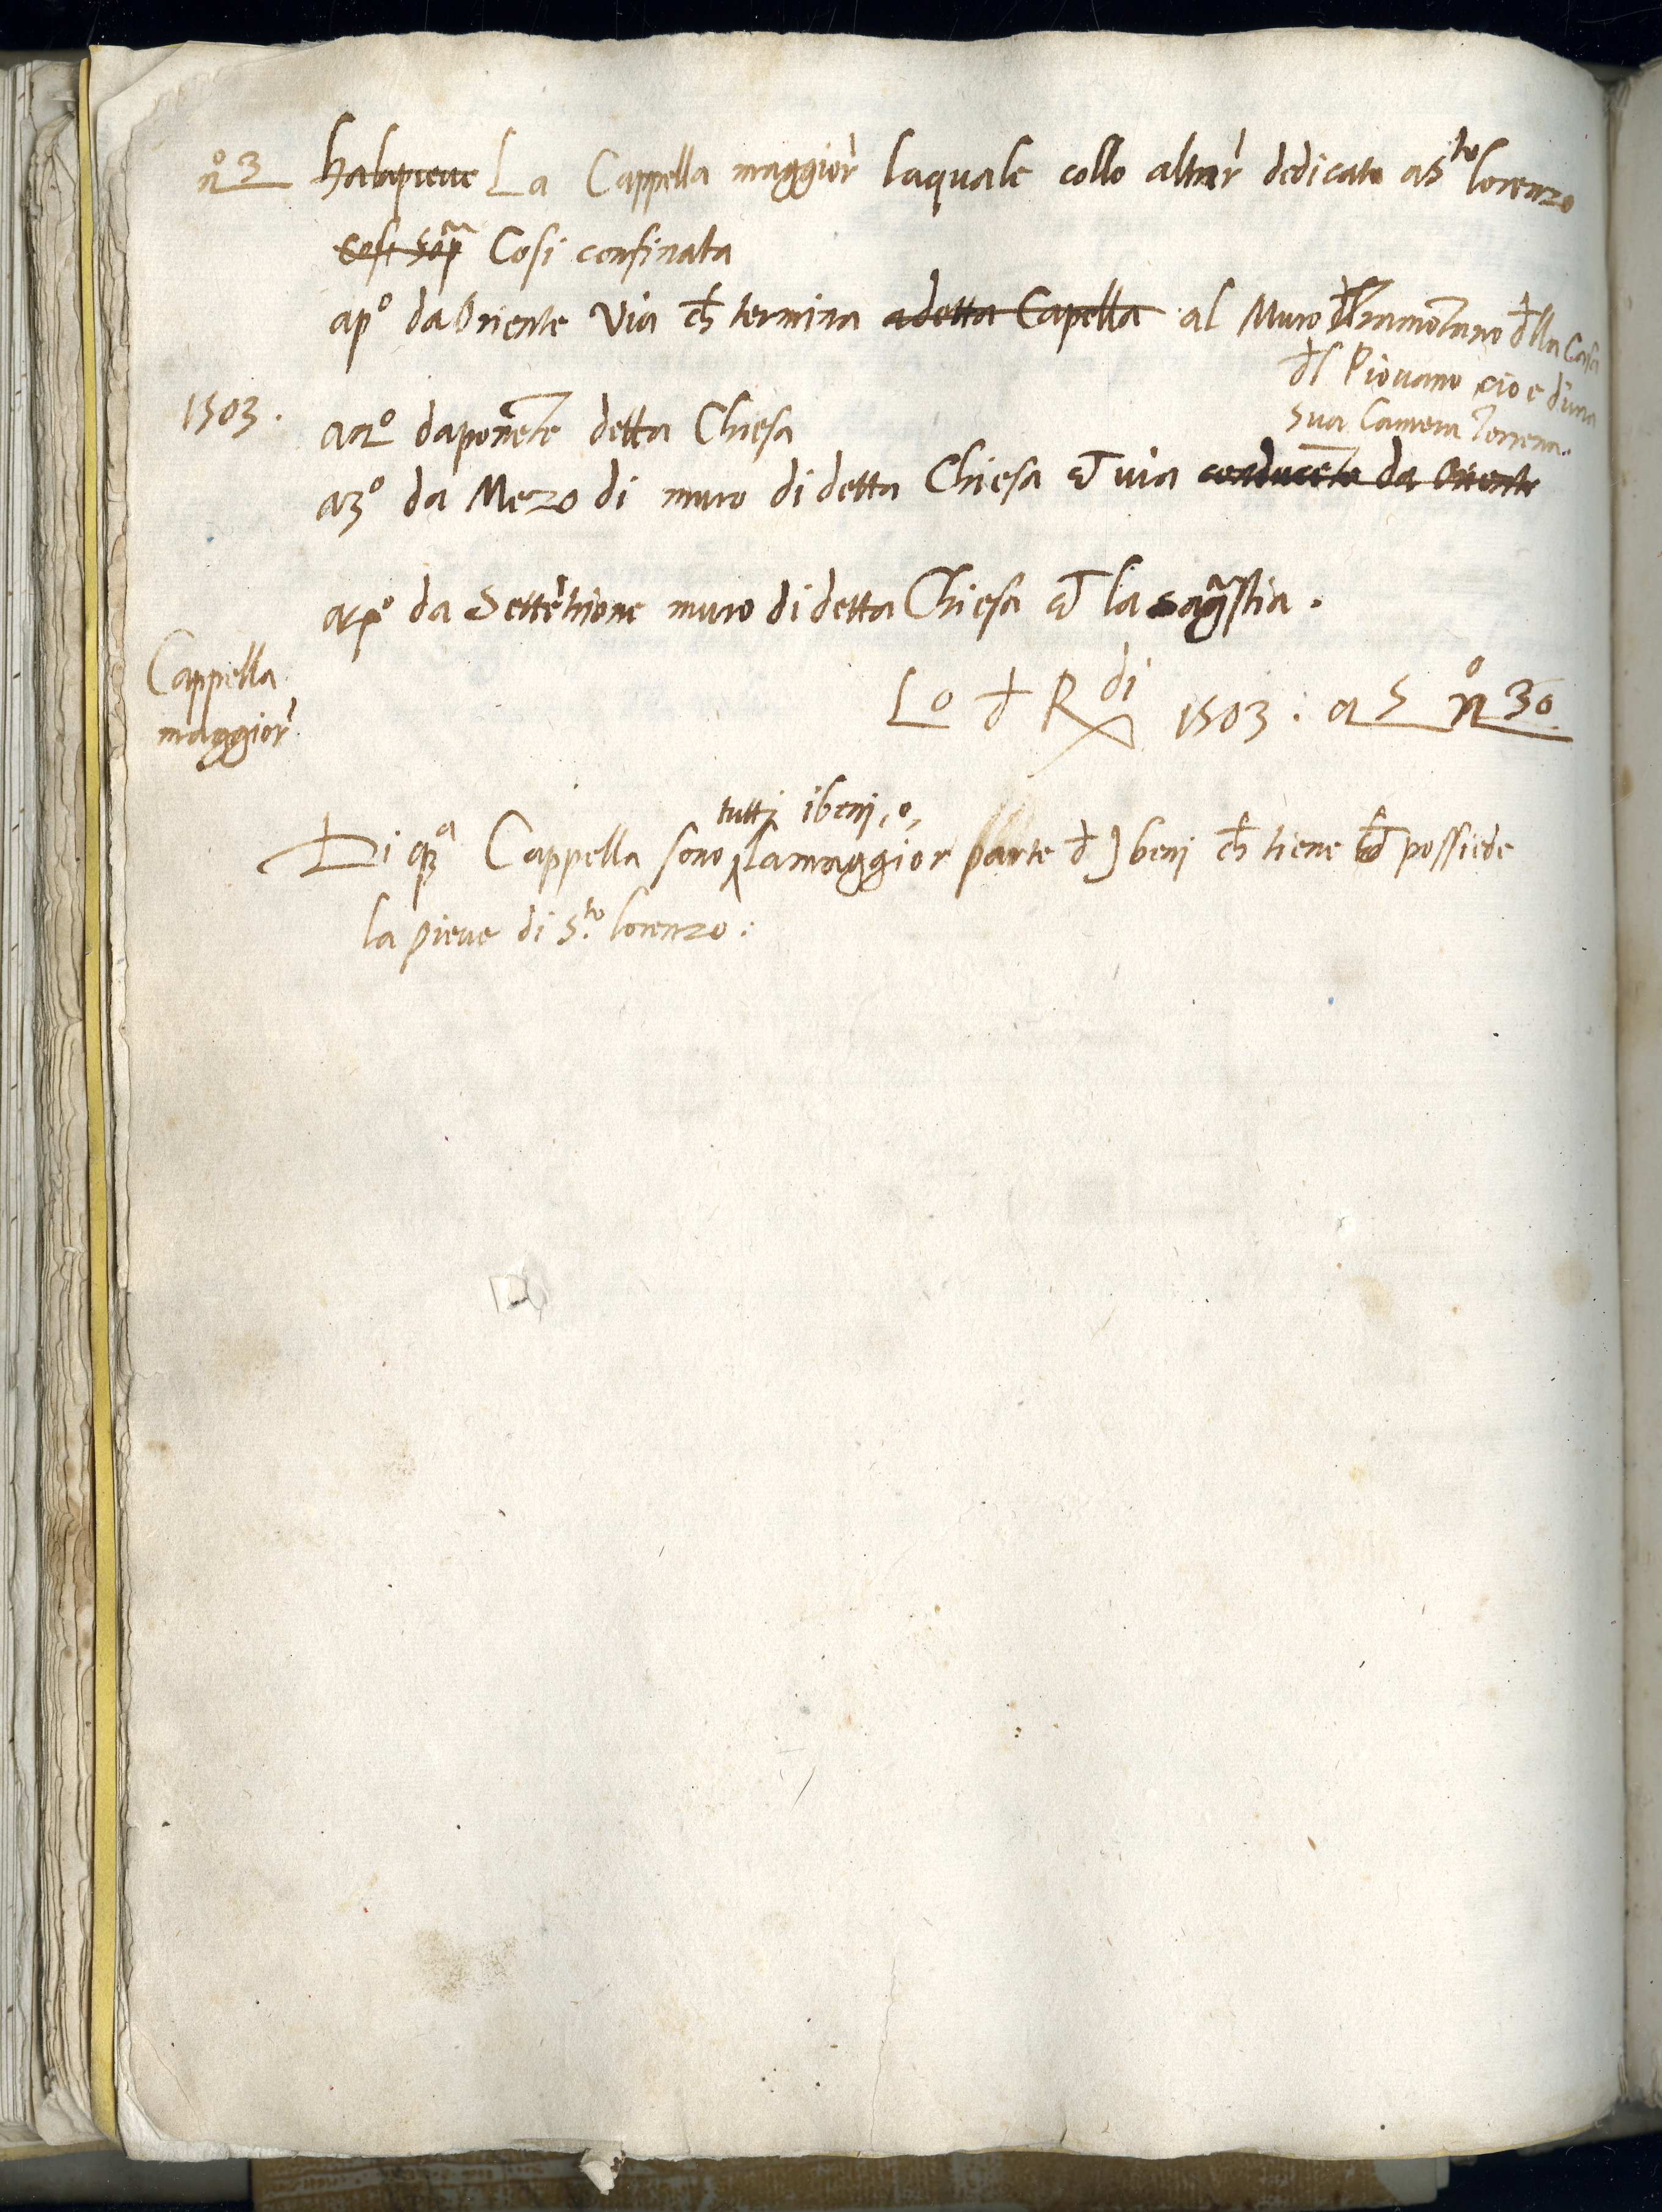 n° 3 halapieve La Cappella maggior laquale collo altar dedicato a S.to lorenzo
Cosi sop.a Cosi confinata
ap° da Oriente Via ch termina a detta Capella al Muro dl tramontano dlla Casa
dl Piovano cio e d'una
sua Camera Terrena.
1503. a2° da ponente detta Chiesa
a3° da Mezo di muro di detta Chiesa et via conducente da Oriente
a4° da Settentrione muro di detta Chiesa et la sagrestia.
Cappella
maggior
Lo d Rdi 1503: a 5 n° 30
tutti i benj, o,
Di q.a Cappella sono la maggior parte d J benj ch tiene et possiede
la pieve di S.to lorenzo: